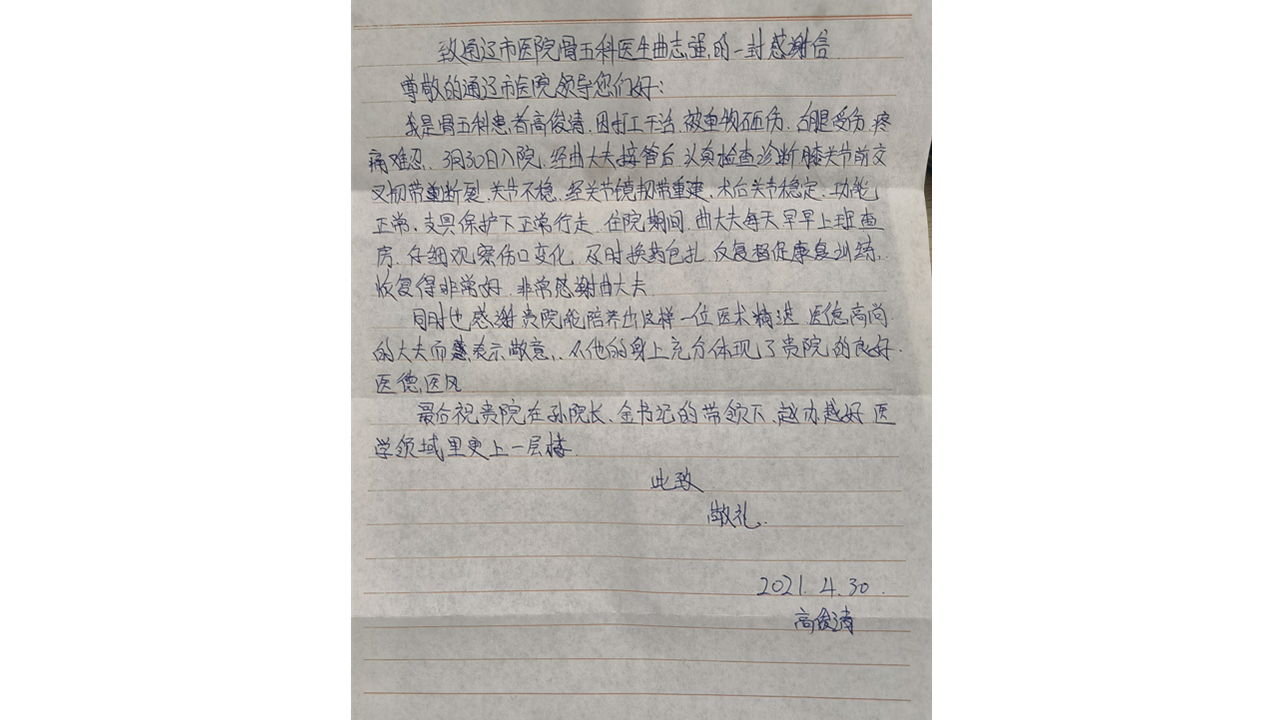 致通辽市医院骨五科医生曲志强的一封感谢信
尊敬的通辽市医院领导您们好:
我是骨五科患者高俊清,因打工干活,被重物砸伤,右腿受伤,疼
痛难忍,3月30日入院,经曲大夫接管后,认真检查诊断膝关节前交
叉韧带断裂,关节不稳,经关节镜韧带重建,术后关节稳定,功能
正常,支具保护下正常行走,住院期间,曲大夫每天早早上班查
房,仔细观察伤口变化,及时换药包扎,反复督促康复训练,
恢复得非常好,非常感谢曲大夫
同时也感谢贵院能陪养出这样一位医术精进,医德高尚
的大夫而表示敬意,从他的身上充分体现了贵院的良好
医德医风
最后祝贵院在孙院长、金书记的带领下,越办越好 医
学领域里更上一层楼.
此致
敬礼.
2021.4.30.
高俊清